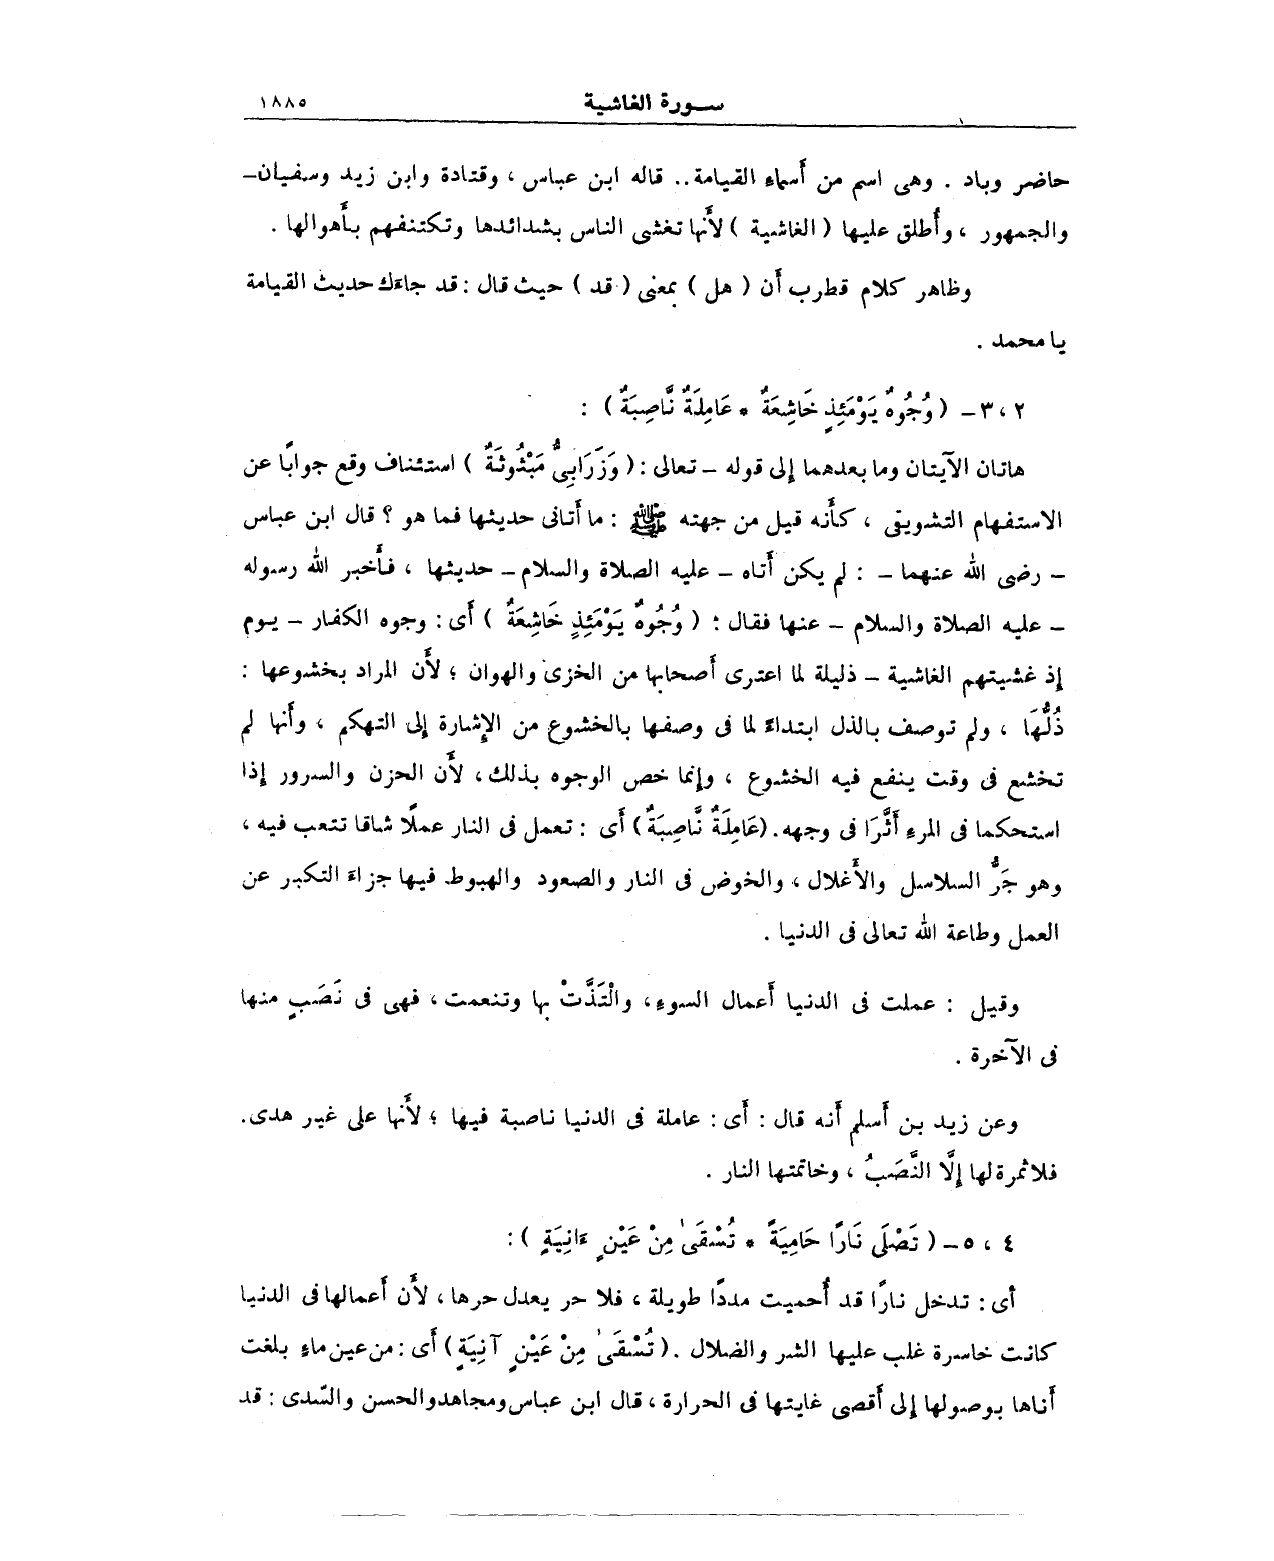 سـورة الغاشية ١٨٨٥
حاضر وباد . وهى اسم من أسماء القيامة.. قاله ابن عباس ، وقتادة وابن زيد وسفيان–
والجمهور ، وأُطلق عليها ( الغاشية ) لأَنها تغشى الناس بشدائدها وتكتنفهم بأَهوالها .
وظاهر كلام قطرب أَن ( هل ) بمعنى ( قد ) حيث قال : قد جاءك حديث القيامة
يا محمد .
٢ ، ٣– ( وُجُوهٌ يَوْمَئِذٍ خَاشِعَةٌ * عَامِلَةٌ نَّاصِبَةٌ ) :
هاتان الآيتان وما بعدهما إلى قوله – تعالى : ( وَزَرَابِىُّ مَبْثُوثَةٌ ) استئناف وقع جوابًا عن
الاستفهام التشويقى ، كأَنه قيل من جهته ﷺ : ما أَتانى حديثها فما هو ؟ قال ابن عباس
– رضى الله عنهما – : لم يكن أَتاه – عليه الصلاة والسلام – حديثها ، فأَخبر الله رسوله
– عليه الصلاة والسلام – عنها فقال : ( وُجُوهٌ يَوْمَئِذٍ خَاشِعَةٌ ) أَى : وجوه الكفار – يوم
إذ غشيتهم الغاشية – ذليلة لما اعترى أَصحابها من الخزى والهوان ؛ لأَن المراد بخشوعها :
ذُلُّهَا ، ولم توصف بالذل ابتداءً لما فى وصفها بالخشوع من الإشارة إلى التهكم ، وأَنها لم
تخشع فى وقت ينفع فيه الخشوع ، وإنما خص الوجوه بذلك ، لأَن الحزن والسرور إذا
استحكما فى المرءِ أَثَّرَا فى وجهه. (عَامِلَةٌ نَّاصِبَةٌ ) أَى : تعمل فى النار عملًا شاقا تتعب فيه ،
وهو جَرُّ السلاسل والأَغلال ، والخوض فى النار والصعود والهبوط فيها جزاءَ التكبر عن
العمل وطاعة الله تعالى فى الدنيا .
وقيل : عملت فى الدنيا أَعمال السوءِ ، والْتَذَّتْ بها وتنعمت ، فهى فى نَصَبٍ منها
فى الآخرة .
وعن زيد بن أَسلم أَنه قال : أَى : عاملة فى الدنيا ناصبة فيها ؛ لأَنها على غير هدى.
فلا ثمرة لها إلَّا النَّصَبُ ، وخاتمتها النار .
٤ ، ٥– ( تَصْلَى نَارًا حَامِيَةً * تُسْقَىٰ مِنْ عَيْنٍ ءَانِيَةٍ ) :
أى : تدخل نارًا قد أُحميت مددًا طويلة ، فلا حر يعدل حرها ، لأَن أَعمالها فى الدنيا
كانت خاسرة غلب عليها الشر والضلال . ( تُسْقَىٰ مِنْ عَيْنٍ آنِيَةٍ ) أَى : من عين ماءٍ بلغت
أَناها بوصولها إلى أَقصى غايتها فى الحرارة ، قال ابن عباس ومجاهد والحسن والسّدى : قد